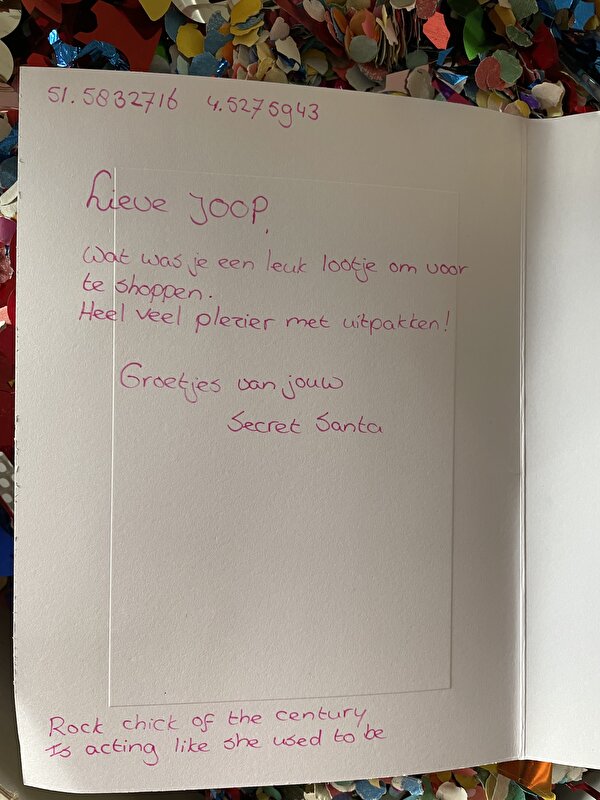 51.5832716 4.5275943
Lieve JOOP,
Wat was je een leuk lootje om voor
te shoppen.
Heel veel plezier met uitpakken!
Groetjes van jouw
Secret Santa
Rock chick of the century
Is acting like she used to be